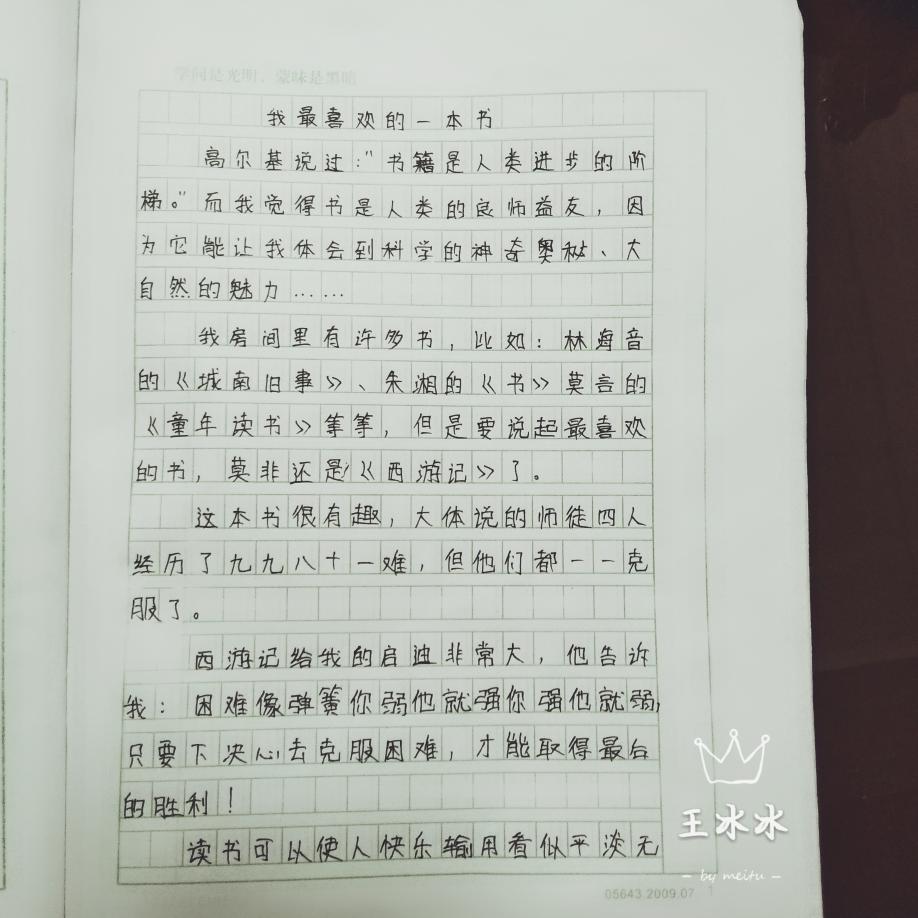 学问是光明，蒙昧是黑暗
我最喜欢的一本书
高尔基说过:"书籍是人类进步的阶
梯。"而我觉得书是人类的良师益友，因
为它能让我体会到科学的神奇奥秘、大
自然的魅力……
我房间里有许多书，比如：林海音
的《城南旧事》、朱湘的《书》莫言的
《童年读书》等等，但是要说起最喜欢
的书，莫非还是《西游记》了。
这本书很有趣，大体说的师徒四人
经历了九九八十一难，但他们都一一克
服了。
西游记给我的启迪非常大，他告诉
我：困难像弹簧你弱他就强你强他就弱，
只要下决心去克服困难，才能取得最后
的胜利！
读书可以使人快乐输用看似平淡无
王冰冰
- by meitu -
05643.2009.07 1